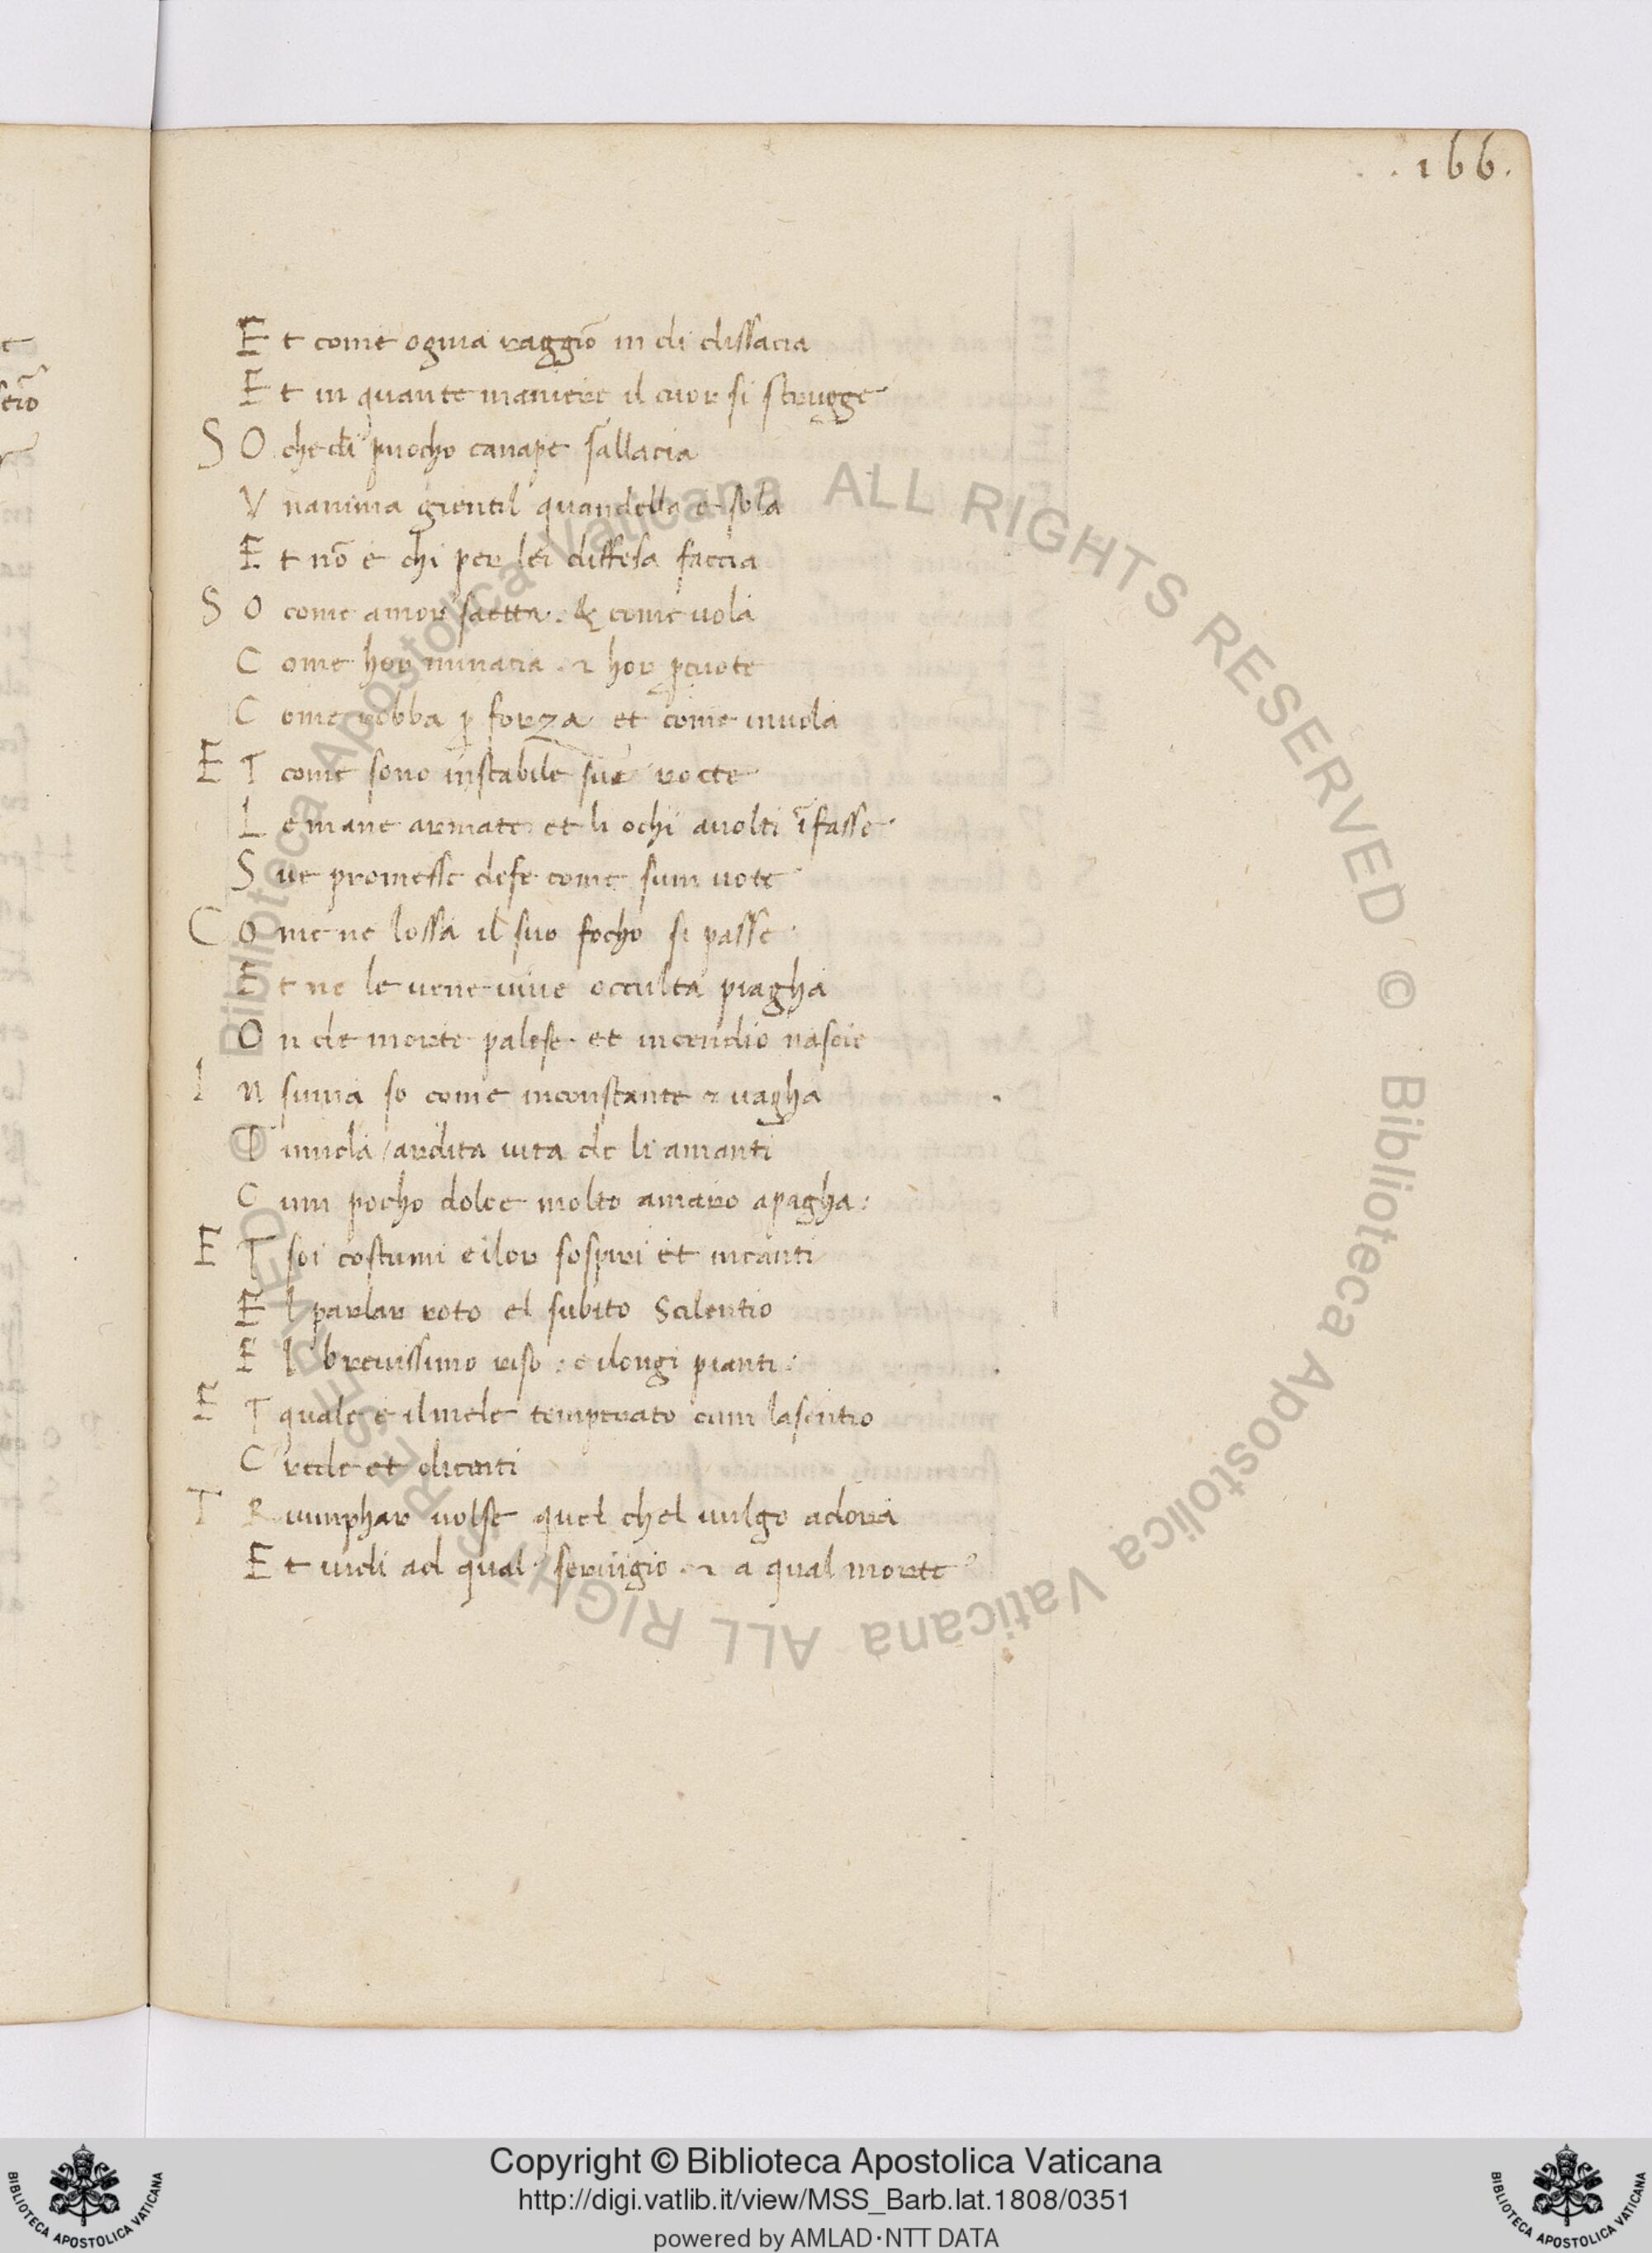 .166.
Et come ognia raggiō in di dissacia
Et in quante maniere il cuor si strugge
SO che di puocho canape sallacia
Vnanima gientil quandella e sola
Et nō e chi per lei diffesa faccia
SO come amor saetta. & come uola
Come hor minacia. ⁊ hor ꝑcuote
Come robba ꝑ forza et come inuola
ET come sono instabile sue rocte
Le mane armate et li ochi auolti ī fasse
Sue promesse de fe come sum uote
COme ne lossa il suo focho si passe
Et ne le uene uiue occulta piagha
Onde morte palese et incendio nascie
IN suma so come inconstante ⁊ uagha
Timida / ardita uita de li amanti
Cum pocho dolce molto amaro apagha:
ET soi costumi e i lor sospiri et incanti
El parlar roto el subito Scilentio
El breuissimo riso: e ilongi pianti:
ET quale e il mele temperato cum lasentio
C rede et dicenti
TRiumphar uolse quel chel uulgo adora
Et uidi ad qual seruigio. ⁊ a qual morte
Biblioteca Apostolica Vaticana ALL RIGHTS RESERVED © Biblioteca Apostolica Vaticana ALL RIGHTS RESERVED ©
Copyright © Biblioteca Apostolica Vaticana
http://digi.vatlib.it/view/MSS_Barb.lat.1808/0351
powered by AMLAD·NTT DATA
BIBLIOTECA APOSTOLICA VATICANA
BIBLIOTECA APOSTOLICA VATICANA